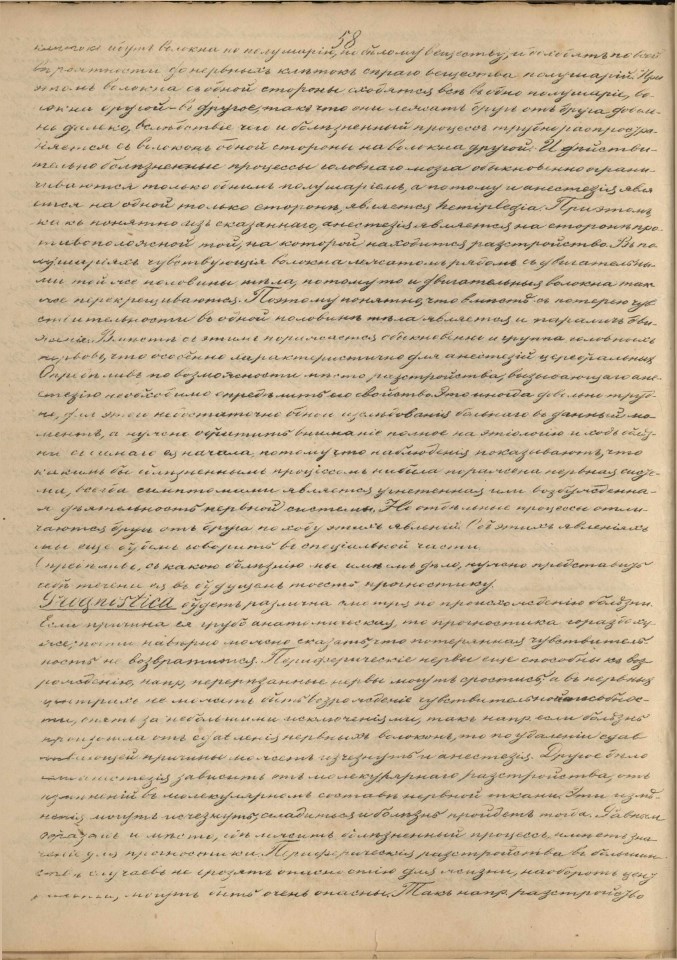 58
клѣтокъ идутъ волокна по полушарій, по бѣлому веществу, и доходятъ по всей
вѣроятности до нервныхъ клѣтокъ сѣраго вещества полушарій. При
этомъ волокна съ одной стороны сходятся всѣ въ одно полушаріе, во-
локна другой – въ другое; такъ что они лежатъ другъ отъ друга доволь-
но далеко, вслѣдствіе чего и болѣзненный процессъ трудно распростра-
няется съ волоконъ одной стороны на волокна другой. И дѣйстви-
тельно болѣзненные процессы головнаго мозга обыкновенно ограни-
чиваются только однимъ полушаріемъ, а потому и анестезія явля-
ется на одной только сторонѣ, является hemiplegia. При этомъ,
какъ понятно изъ сказаннаго, анестезія является на сторонѣ про-
тивоположной той, на которой находится разстройство. Въ по-
лушаріяхъ чувствующія волокна лежатъ рядомъ съ двигательны-
ми той же половины тѣла, потому что и двигательныя волокна так-
же перекрещиваются. Поэтому понятно, что вмѣстѣ съ потерею чув-
ствительности въ одной половинѣ тѣла является и параличъ дви-
женій. Вмѣстѣ съ этимъ поражается обыкновенно и группа головныхъ
нервовъ, что особенно характеристично для анестезій церебральныхъ
Опредѣливъ по возможности мѣсто разстройства, вызывающаго ане-
стезію необходимо опредѣлить его свойство. Это иногда довольно труд-
но, для этого недостаточно одного изслѣдованія больнаго въ данный мо-
ментъ, а нужно обратить вниманіе полное на этіологію и ходъ болѣз-
ни съ самаго ея начала, потому что наблюденія показываютъ, что
какимъ бы болѣзненнымъ процессомъ ни была поражена нервная систе-
ма, всегда симптомами является угнетенная или возбужденна-
я дѣятельность нервной системы. Но отдѣльные процессы отли-
чаются другъ отъ друга по ходу этихъ явленій. Объ этихъ явленіяхъ
мы еще будемъ говорить въ спеціальной части.
Опредѣливъ, съ какою болѣзнію мы имѣемъ дѣло, нужно представить
себѣ теченіе ея въ будущемъ то есть прогностику.
Prugnostica будетъ различна смотря по происхожденію болѣзни.
Если причина ея грубо анатомическая, то прогностика гораздо ху-
же; почти навѣрно можно сказать, что потерянная чувствитель-
ность не возвратится. Периферическіе нервы еще способны къ воз-
рожденію, напр. перерѣзанные нервы могутъ сростись, а въ нервныхъ
центрахъ не можетъ быть возрожденіе чувствительной способнос-
ти, опять за небольшими исключеніями, такъ напр. если болѣзнь
произошла отъ сдавленія нервныхъ волоконъ, то по удаленіи сдав-
ливающей причины можетъ изчезнуть и анестезія. Другое дѣло
анестезія зависитъ отъ молекулярнаго разстройства, отъ
измѣненій въ молекулярномъ составѣ нервной ткани. Эти измѣ-
ненія могутъ исчезнуть, сладиться и болѣзнь пройдетъ тогда. Равнымъ
образомъ и мѣсто, гдѣ лежитъ болѣзненный процессъ, имѣетъ зна-
ченіе для прогностики. Периферическія разстройства въ большин-
ствѣ случаевъ не грозятъ опасностію для жизни, наоборотъ цент-
ральныя, могутъ быть очень опасны. Такъ напр. разстройство